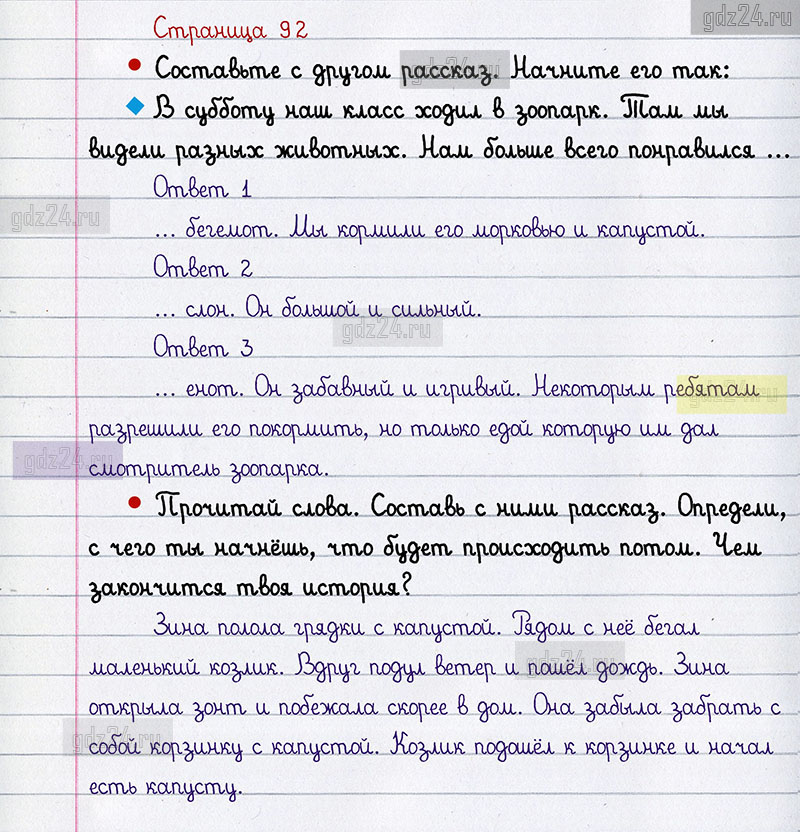 gdz24.ru
Страница 92
gdz24.ru
Составьте с другом рассказ. Начните его так:
В субботу наш класс ходил в зоопарк. Там мы
видели разных животных. Нам больше всего понравился ...
Ответ 1
gdz24.ru
... бегемот. Мы кормили его морковью и капустой.
Ответ 2
... слон. Он большой и сильный.
gdz24.ru
Ответ 3
... енот. Он забавный и игривый. Некоторым ребятам
gdz24.ru
разрешили его покормить, но только едой которую им дал
gdz24.ru
смотритель зоопарка.
Прочитай слова. Составь с ними рассказ. Определи,
с чего ты начнёшь, что будет происходить потом. Чем
закончится твоя история?
Зина полола грядки с капустой. Рядом с неё бегал
маленький козлик. Вдруг подул ветер и пошёл дождь. Зина
gdz24.ru
открыла зонт и побежала скорее в дом. Она забыла забрать с
gdz24.ru
собой корзинку с капустой. Козлик подошёл к корзинке и начал
есть капусту.